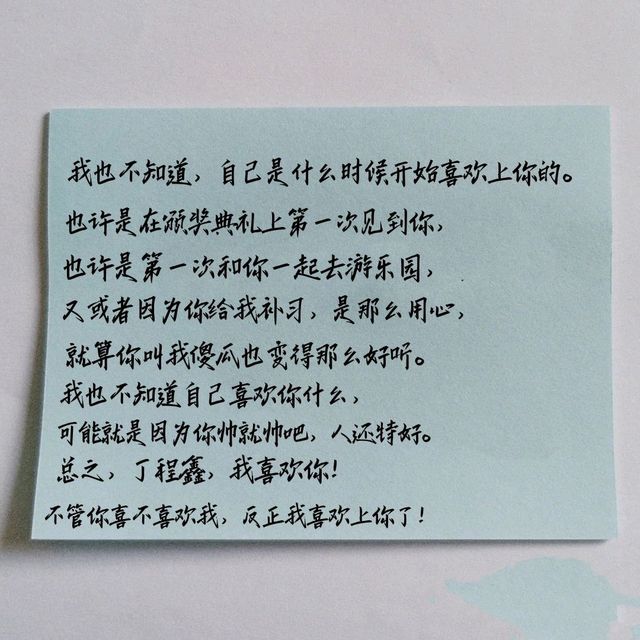 我也不知道，自己是什么时候开始喜欢上你的。
也许是在颁奖典礼上第一次见到你，
也许是第一次和你一起去游乐园，
又或者因为你给我补习，是那么用心，
就算你叫我傻瓜也变得那么好听。
我也不知道自己喜欢你什么，
可能就是因为你帅就帅吧，人还特好。
总之，丁程鑫，我喜欢你！
不管你喜不喜欢我，反正我喜欢上你了！